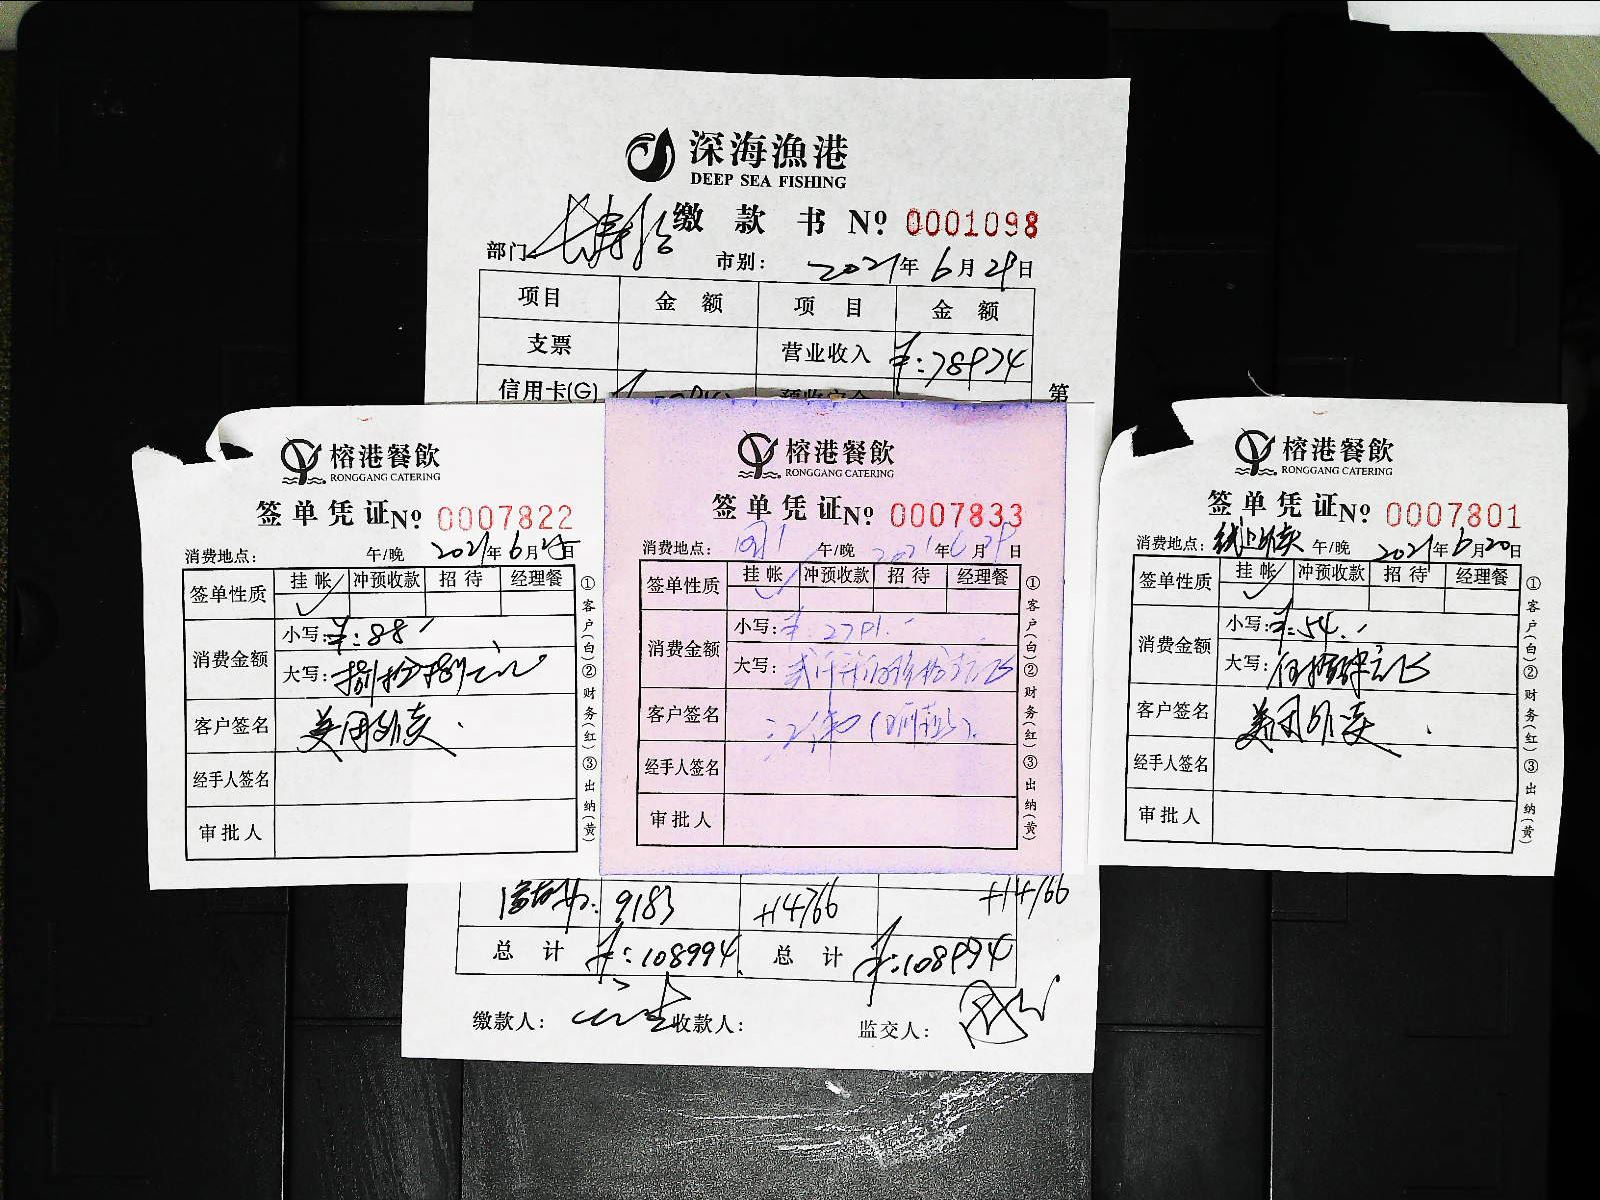 深海漁港
DEEP SEA FISHING
缴款书 No 0001098
部门 市别： 2021年6月29日
项目 金额 项目 金额
支票 营业收入 ¥:78974
信用卡(G) 预收定金
第
9183 +14766 +14766
总计 ¥:108994 总计 ¥:108994
缴款人： 收款人： 监交人：
榕港餐飲
RONGGANG CATERING
签单凭证No 0007822
消费地点： 午/晚 2021年6月25日
签单性质 挂帐 冲预收款 招待 经理餐
✓
消费金额 小写：¥:88
大写：捌拾捌元
客户签名 美团外卖
经手人签名
审批人
①客户(白)②财务(红)③出纳(黄)
榕港餐飲
RONGGANG CATERING
签单凭证No 0007833
消费地点： 午/晚 2021年6月29日
签单性质 挂帐 冲预收款 招待 经理餐
✓
消费金额 小写：¥
大写：
客户签名
经手人签名
审批人
①客户(白)②财务(红)③出纳(黄)
榕港餐飲
RONGGANG CATERING
签单凭证No 0007801
消费地点：线上外卖 午/晚 2021年6月20日
签单性质 挂帐 冲预收款 招待 经理餐
✓
消费金额 小写：¥:54.
大写：伍拾肆元
客户签名 美团外卖
经手人签名
审批人
①客户(白)②财务(红)③出纳(黄)